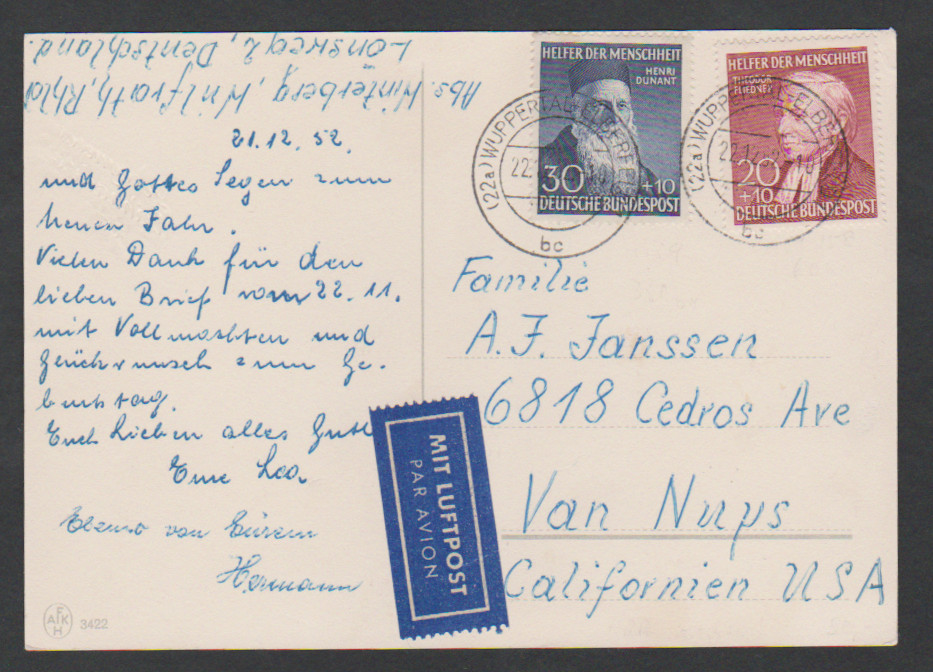 Abs. Winterberg, Wülfrath, Rhld
Lönsweg 2, Deutschland.
21.12.52.
und Gottes Segen zum
neuen Jahr.
Vielen Dank für den
lieben Brief vom 22.11.
mit Vollmachten und
Glückwunsch zum Ge-
burtstag.
Euch Lieben alles Gute
Eure Lea.
Ebenso von Eurem
Hermann
AFKH
3422
HELFER DER MENSCHHEIT
HENRI
DUNANT
30 +10
DEUTSCHE BUNDESPOST
HELFER DER MENSCHHEIT
THEODOR
FLIEDNER
20
+10
DEUTSCHE BUNDESPOST
(22a) WUPPERTAL-ELBERFELD
22.
bc
(22a) WUPPERTAL-ELBERFELD
22.12.
bc
Familie
A.J. Janssen
6818 Cedros Ave
Van Nuys
Californien USA
MIT LUFTPOST
PAR AVION